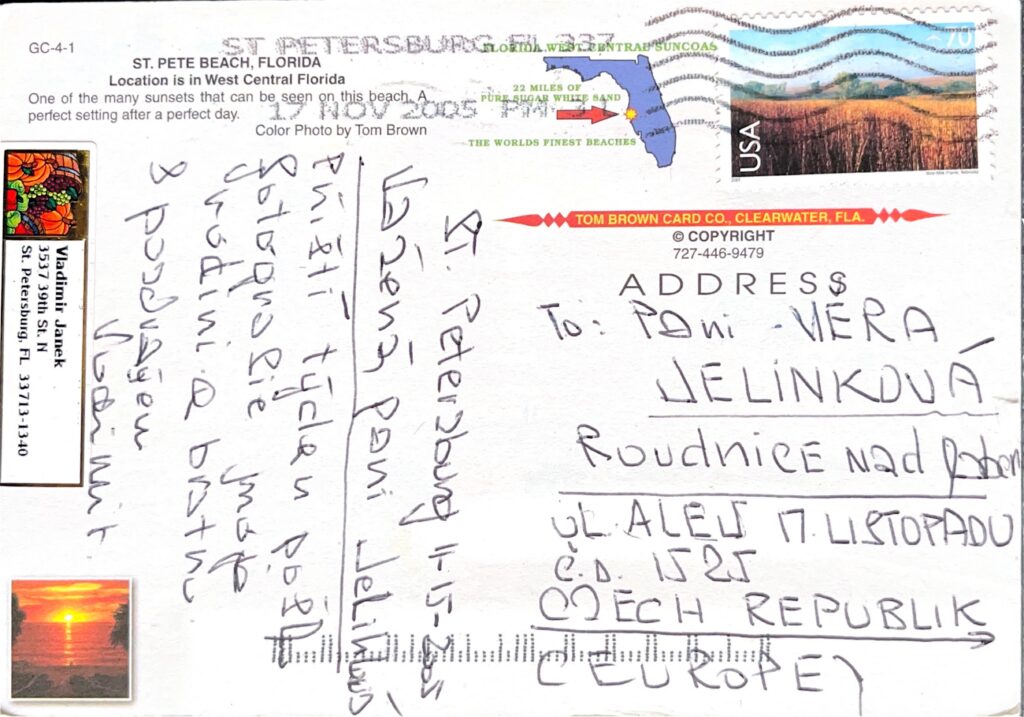 GC-4-1
ST. PETE BEACH, FLORIDA
Location is in West Central Florida
One of the many sunsets that can be seen on this beach. A
perfect setting after a perfect day.
Color Photo by Tom Brown
ST PETERSBURG FL 337
17 NOV 2005 PM
FLORIDA WEST CENTRAL SUNCOAS
22 MILES OF
PURE SUGAR WHITE SAND
THE WORLDS FINEST BEACHES
USA
70
TOM BROWN CARD CO., CLEARWATER, FLA.
© COPYRIGHT
727-446-9479
ADDRESS
To: PAni VĚRA
JELINKOVÁ
ROUDNICE nad
UL. ALEJ 17. LISTOPADU
Č.D. 1525
CZECH REPUBLIK
(EUROPE)
St. Petersburg 11-15-2005
Vážená paní
Příští týden
fotografie
rodini a bratru
S pozdravem
Vladimir Janek
3537 39th St. N
St. Petersburg, FL 33713-1340